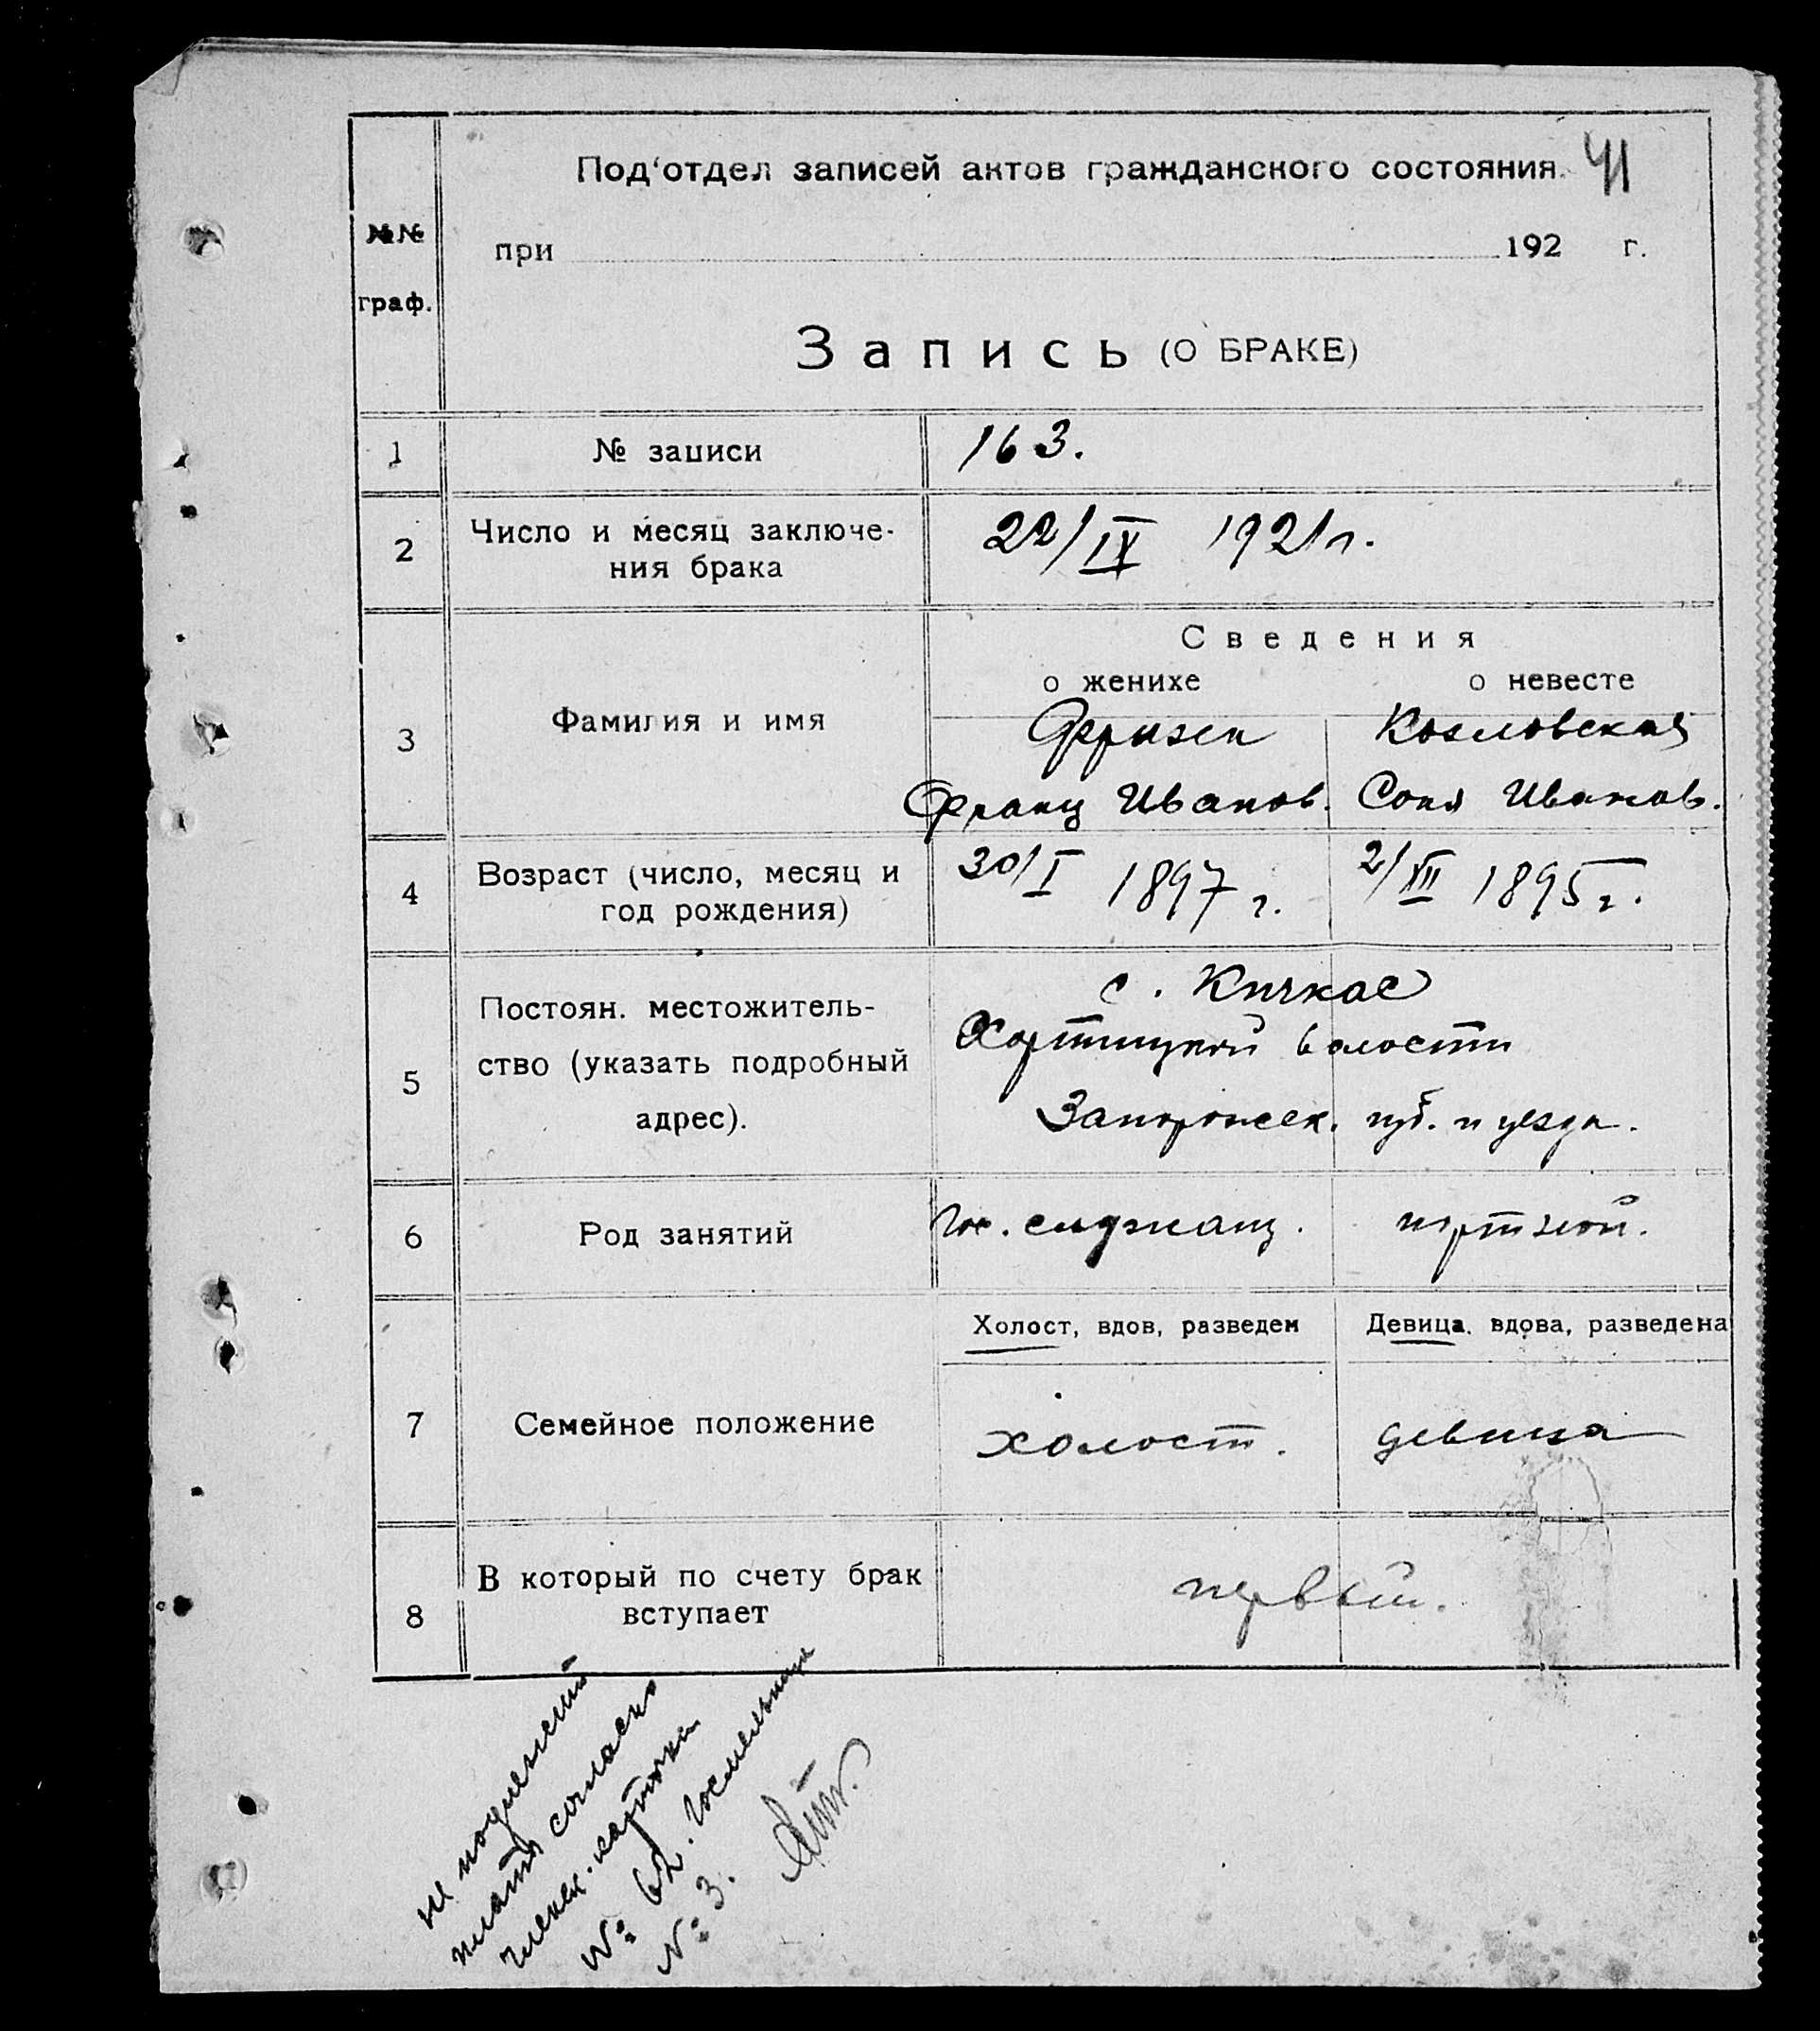 Под'отдел записей актов гражданского состояния. 41
№№
граф.
при 192 г.
Запись (О БРАКЕ)
1 № записи 163.
2 Число и месяц заключе-
ния брака 22/IX 1921 г.
Сведения
о женихе о невесте
3 Фамилия и имя Фризен Козловская
Франц Иванов. Соня Иванов.
4 Возраст (число, месяц и
год рождения) 30/I 1897 г. 2/XII 1895 г.
5 Постоян. местожитель-
ство (указать подробный
адрес).
с. Кичкас
Хортицкой волости
Запорожск. губ. и уезда.
6 Род занятий служащ. портной.
Холост, вдов, разведен Девица, вдова, разведена
7 Семейное положение холост. девица
8 В который по счету брак
вступает первый.
не подлежит
плате согласно
членск. карточки
№ 62. Госмельница
№ 3.